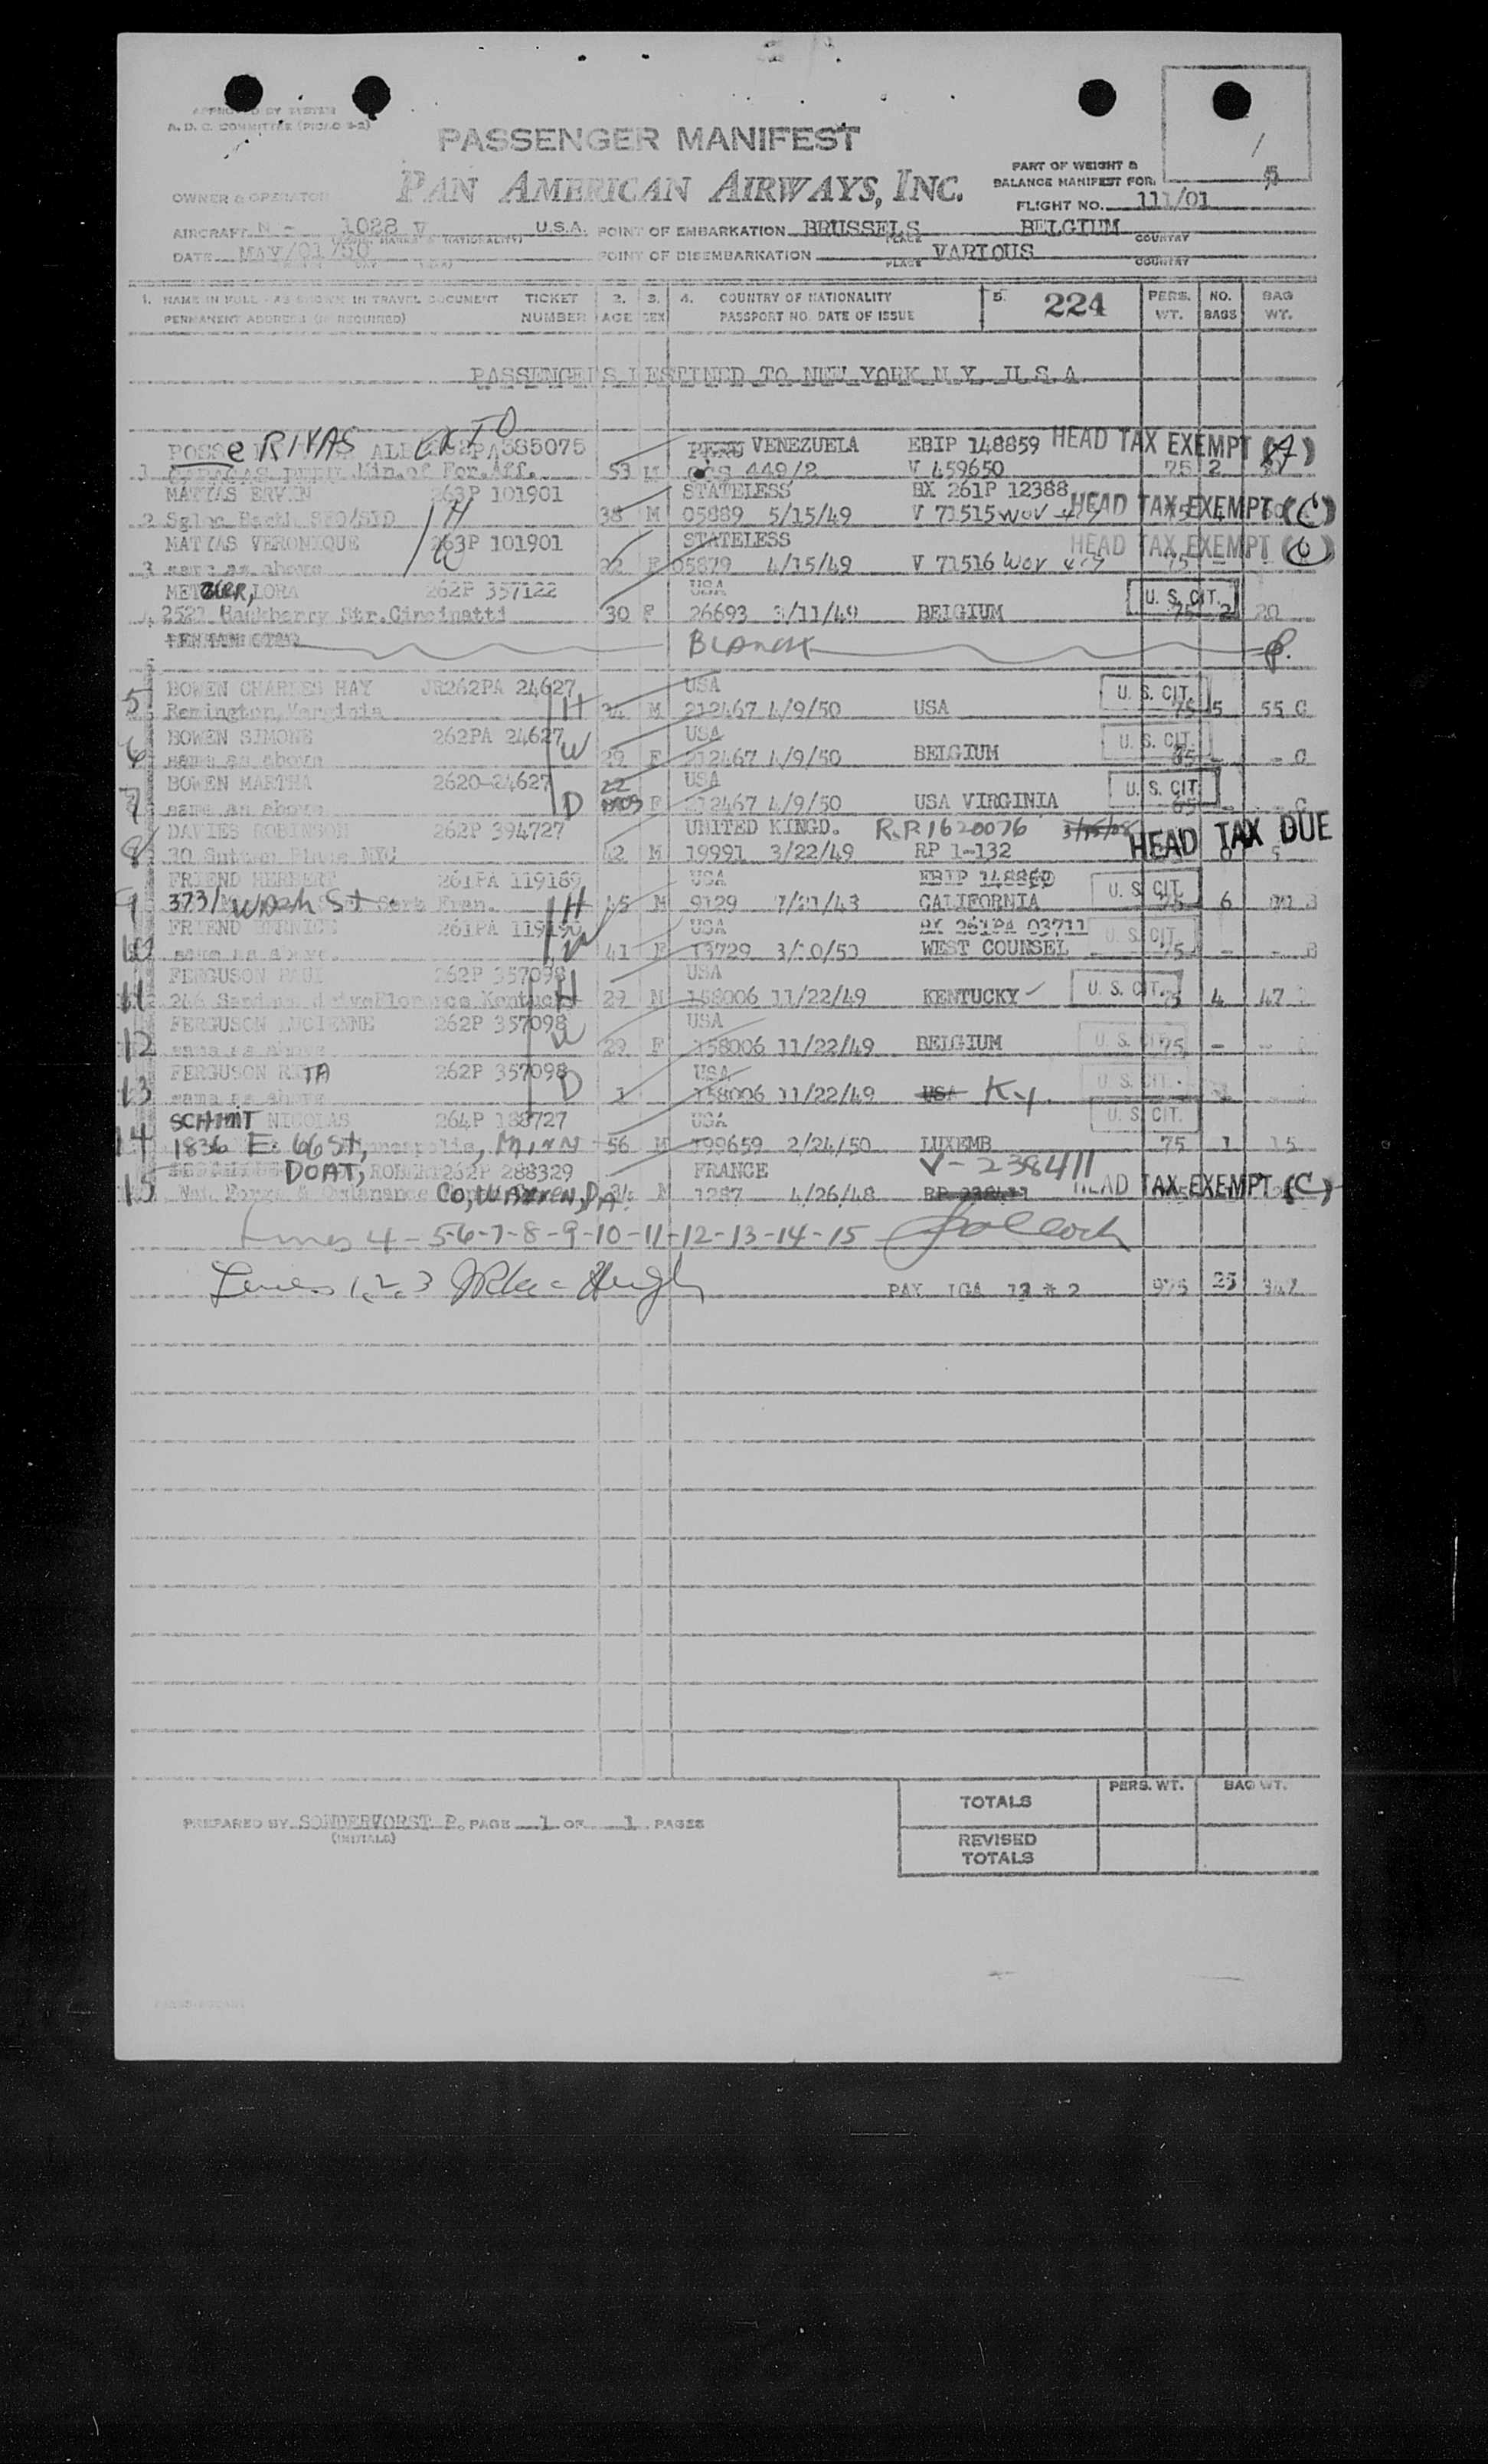 APPROVED BY SYSTEM
A. D. C. COMMITTEE (PICAO 3-2)
PASSENGER MANIFEST
PAN AMERICAN AIRWAYS, INC.
PART OF WEIGHT &
BALANCE MANIFEST FOR:
FLIGHT NO. 111/01
OWNER & OPERATOR
AIRCRAFT N - 1028 V U.S.A. POINT OF EMBARKATION BRUSSELS BELGIUM
PLACE COUNTRY
DATE MAY/01/50 POINT OF DISEMBARKATION VARIOUS
PLACE COUNTRY
1. NAME IN FULL - AS SHOWN IN TRAVEL DOCUMENT TICKET 2. 3. 4. COUNTRY OF NATIONALITY 5. 224 PERS. NO. BAG
PERMANENT ADDRESS (IF REQUIRED) NUMBER AGE SEX PASSPORT NO. DATE OF ISSUE WT. BAGS WT.
PASSENGERS DESTINED TO NEW YORK N.Y. U.S.A
POSSe RIVAS 385075 PERU VENEZUELA EBIP 148859 HEAD TAX EXEMPT
1 Min.of For.Aff. 53 M 449/2 V 459650 75 2
MATYAS ERVIN 263P 101901 STATELESS BX 261P 12388 HEAD TAX EXEMPT (C)
2 38 M 05889 5/15/49 V 71515
MATYAS VERONIQUE 263P 101901 H W STATELESS HEAD TAX EXEMPT
3 same as above 22 F 05879 4/15/49 V 71516 75 -
METZGER, LORA 262P 357122 USA U. S. CIT.
4 2527 Hackberry Str.Cincinatti 30 F 26693 3/11/49 BELGIUM 75 2 20
BLANCK
BOWEN CHARLES HAY JR262PA 24627 USA U. S. CIT.
5 Remington, Varginia H 34 M 212467 4/9/50 USA 75 5 55 C
BOWEN SIMONE 262PA 24627 USA U. S. CIT.
6 same as above W 29 F 212467 4/9/50 BELGIUM - - C
BOWEN MARTHA 2620-24627 22 USA U. S. CIT.
7 same as above D F 212467 4/9/50 USA VIRGINIA 65 - - C
DAVIES ROBINSON 262P 394727 UNITED KINGD. R.P 1620076 HEAD TAX DUE
8 30 Sutton Place NYC 42 M 19991 3/22/49 RP 1-132
FRIEND HERBERT 261PA 119189 USA EBIP 148860 U. S. CIT.
9 3731 Wash St. San Fran. H 45 M 9129 7/21/43 CALIFORNIA 6
FRIEND BERNICE 261PA 119190 USA BX 261PA 03711 U. S. CIT.
10 same as above W 41 F 13729 3/10/50 WEST COUNSEL 75 - - B
FERGUSON PAUL 262P 357098 USA
11 H 29 M 158006 11/22/49 KENTUCKY U. S. CIT. 75 4 47
FERGUSON LUCIENNE 262P 357098 USA
12 same as above W 29 F 158006 11/22/49 BELGIUM U. S. CIT. 75 - -
FERGUSON RITA 262P 357098 USA U. S. CIT.
13 same as above D 1 158006 11/22/49 USA Ky.
SCHMIT NICOLAS 264P 188727 USA U. S. CIT.
14 1836 E. 66 St, Minneapolis, MINN 56 M 199659 2/24/50 LUXEMB 75 1 15
DOAT, ROBERT 262P 288329 FRANCE V-238411
15 Nat. Forge & Ordanance CO, WARREN, PA. M 1287 4/26/48 HEAD TAX EXEMPT (C)
Lines 4-5-6-7-8-9-10-11-12-13-14-15
Lines 1, 2, 3 PAX LGA 975 25 347
TOTALS PERS. WT. BAG WT.
PREPARED BY SONDERVORST P. PAGE 1 OF 1 PAGES
(INITIALS)
REVISED
TOTALS